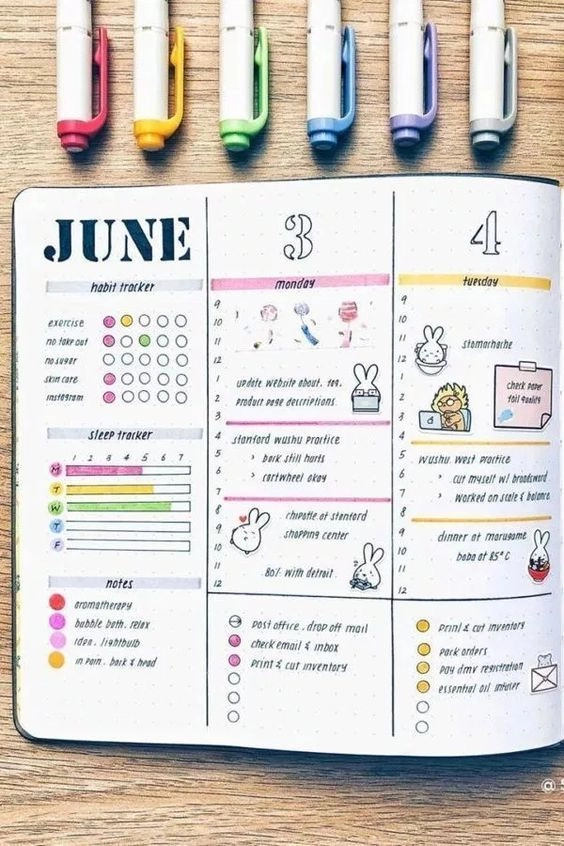 JUNE
habit tracker
exercise
no take out
no sugar
skin care
instagram
sleep tracker
1 2 3 4 5 6 7
M
T
W
T
F
notes
aromatherapy
bubble bath. relax
idea. lightbulb
in pain. back & head
3
monday
9
10
11
12
1
2
3
4
5
6
7
8
9
10
11
12
update website about. tag.
product page descriptions
stanford wushu practice
> back still hurts
> cartwheel okay
chipotle at stanford
shopping center
with detroit
post office. drop off mail
check email & inbox
Print & cut inventory
4
tuesday
9
10
11
12
1
2
3
4
5
6
7
8
9
10
11
12
stomachache
check paper
foil quality
wushu west practice
> cut myself w/ broadsword
> worked on scale & balance
dinner at marugame
boba at 85°C
Print & cut inventory
Pack orders
Pay dmv registration
essential oil infuser
@